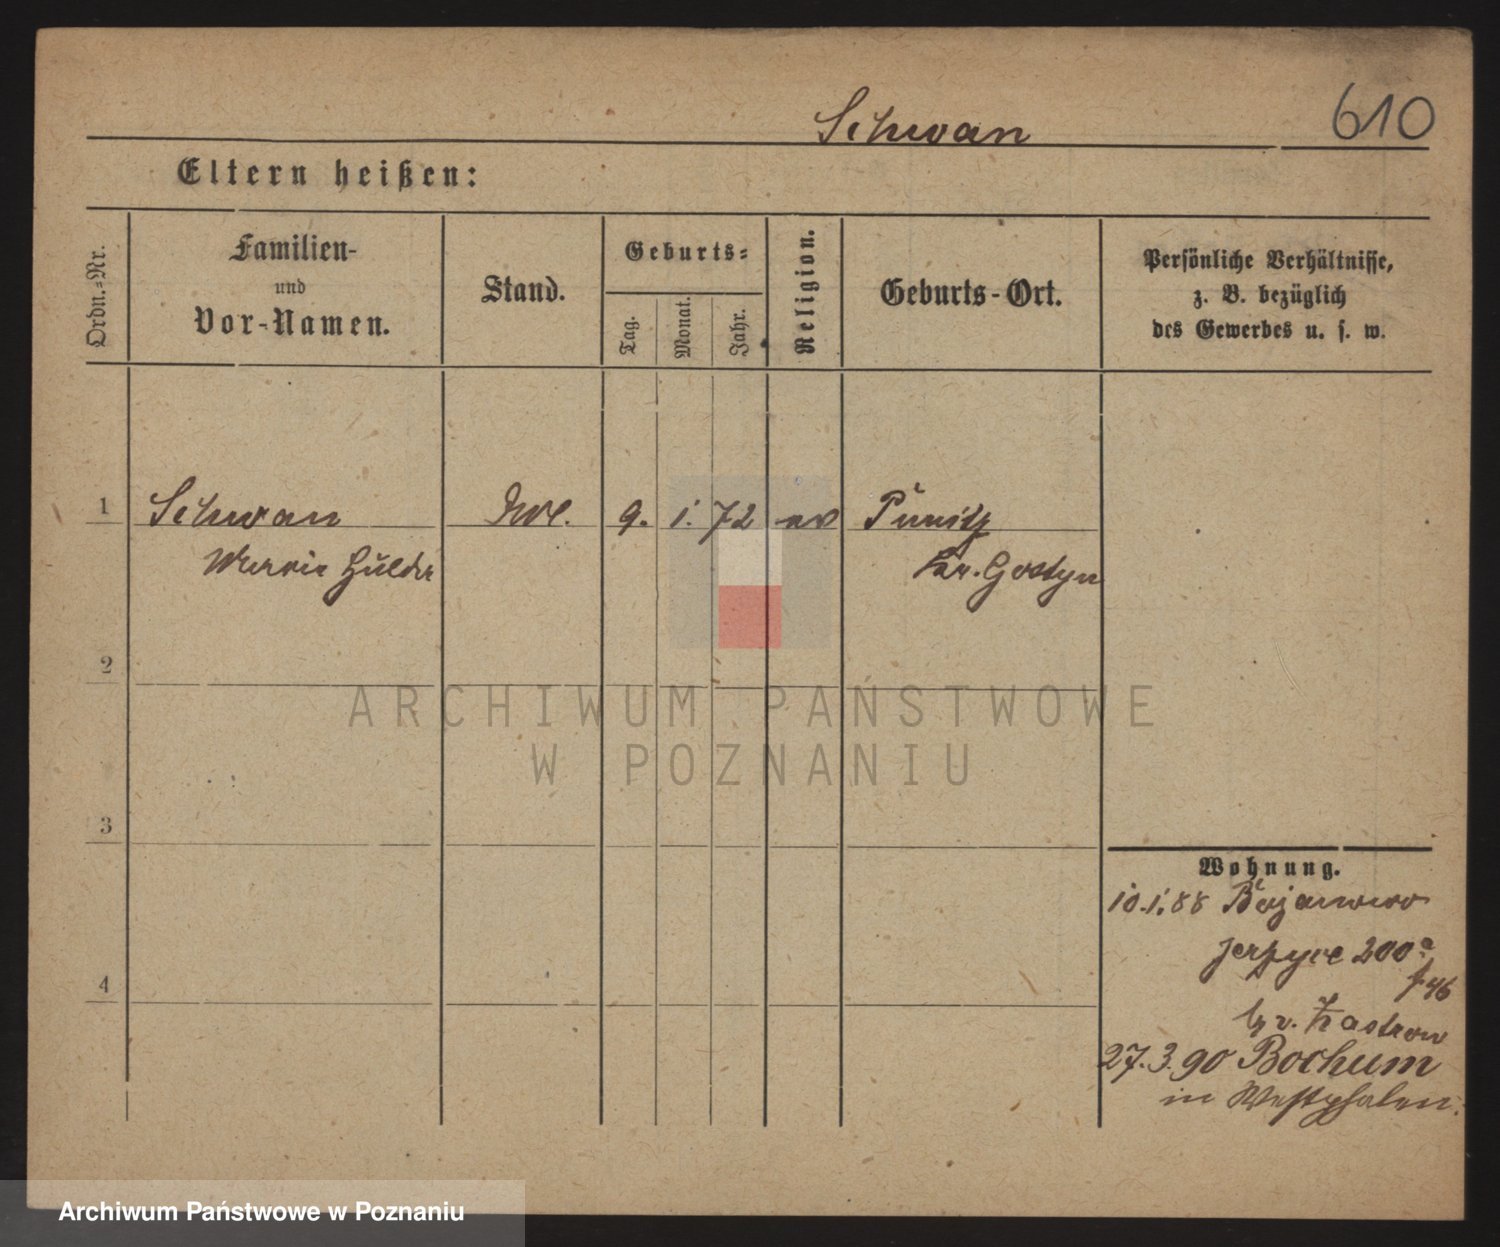 Schwan
610
Eltern heißen:
Ordn.-Nr.
Familien-
und
Vor-Namen.
Stand.
Geburts-
Tag.
Monat.
Jahr.
Religion.
Geburts-Ort.
Persönliche Verhältnisse,
z. B. bezüglich
des Gewerbes u. s. w.
1
Schwan
9. 1. 72 ev Punitz
Marie Hulda
Kr. Gostyn
2
ARCHIWUM PAŃSTWOWE
W POZNANIU
3
Wohnung.
10.1.88
Jerzyce 200a
4
46
b/ v. Zastrow
27.3.90 Bochum
in Westphalen.
Archiwum Państwowe w Poznaniu